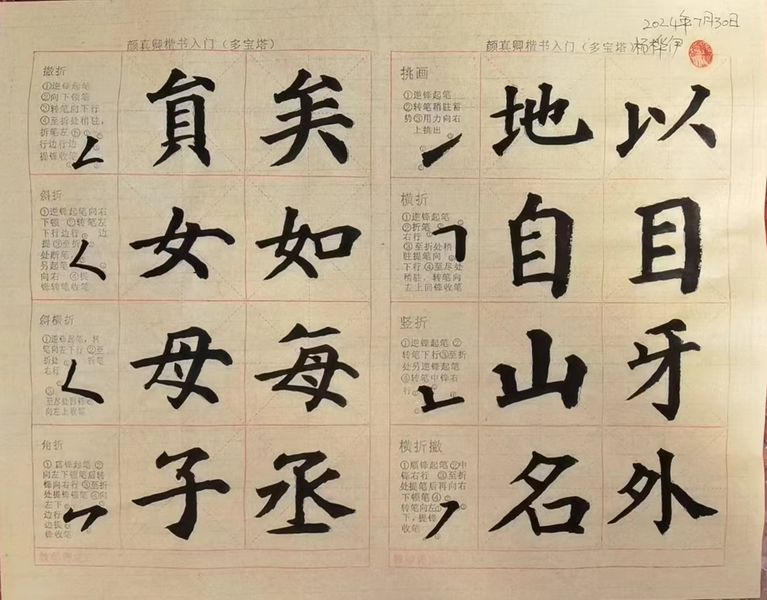 2024年7月30日
杨桦伊
颜真卿楷书入门（多宝塔）
撇折
①逆锋起笔
②向下顿笔
③转笔向下行
④至折处稍驻，
折笔左
行边行边
提锋收笔
員 矣
斜折
①逆锋起笔向右
下顿 ②转笔左
下行边行 边
提 ③至折
处断笔
另起笔
向右 ④提
锋转笔收笔
女 如
斜横折
①逆锋起笔，转
笔向左下行 ②至
折处 折笔
右行
至尽处
向左上收笔
母 每
角折
①露锋起笔 ②
向左下顿笔后转
锋向右行 ③至折
处提锋顿笔 ④向
左下
边行
边提
锋收笔
子 丞
颜真卿楷书入门（多宝塔）
挑画
①逆锋起笔
②转笔稍驻蓄
势③用力向右
上挑出
地 以
横折
①逆锋起笔
②折笔
右行
③至折处稍
驻提笔向
下行 ④至尽处
稍驻，转笔向
左上回锋收笔
自 目
竖折
①逆锋起笔 ②
转笔下行③至折
处另逆锋起笔
④转笔中锋右
行
山 牙
横折撇
①顺锋起笔②中
锋右行 ③至折
处提笔后再向右
下顿笔④
转笔向左
下，提锋
收笔
名 外